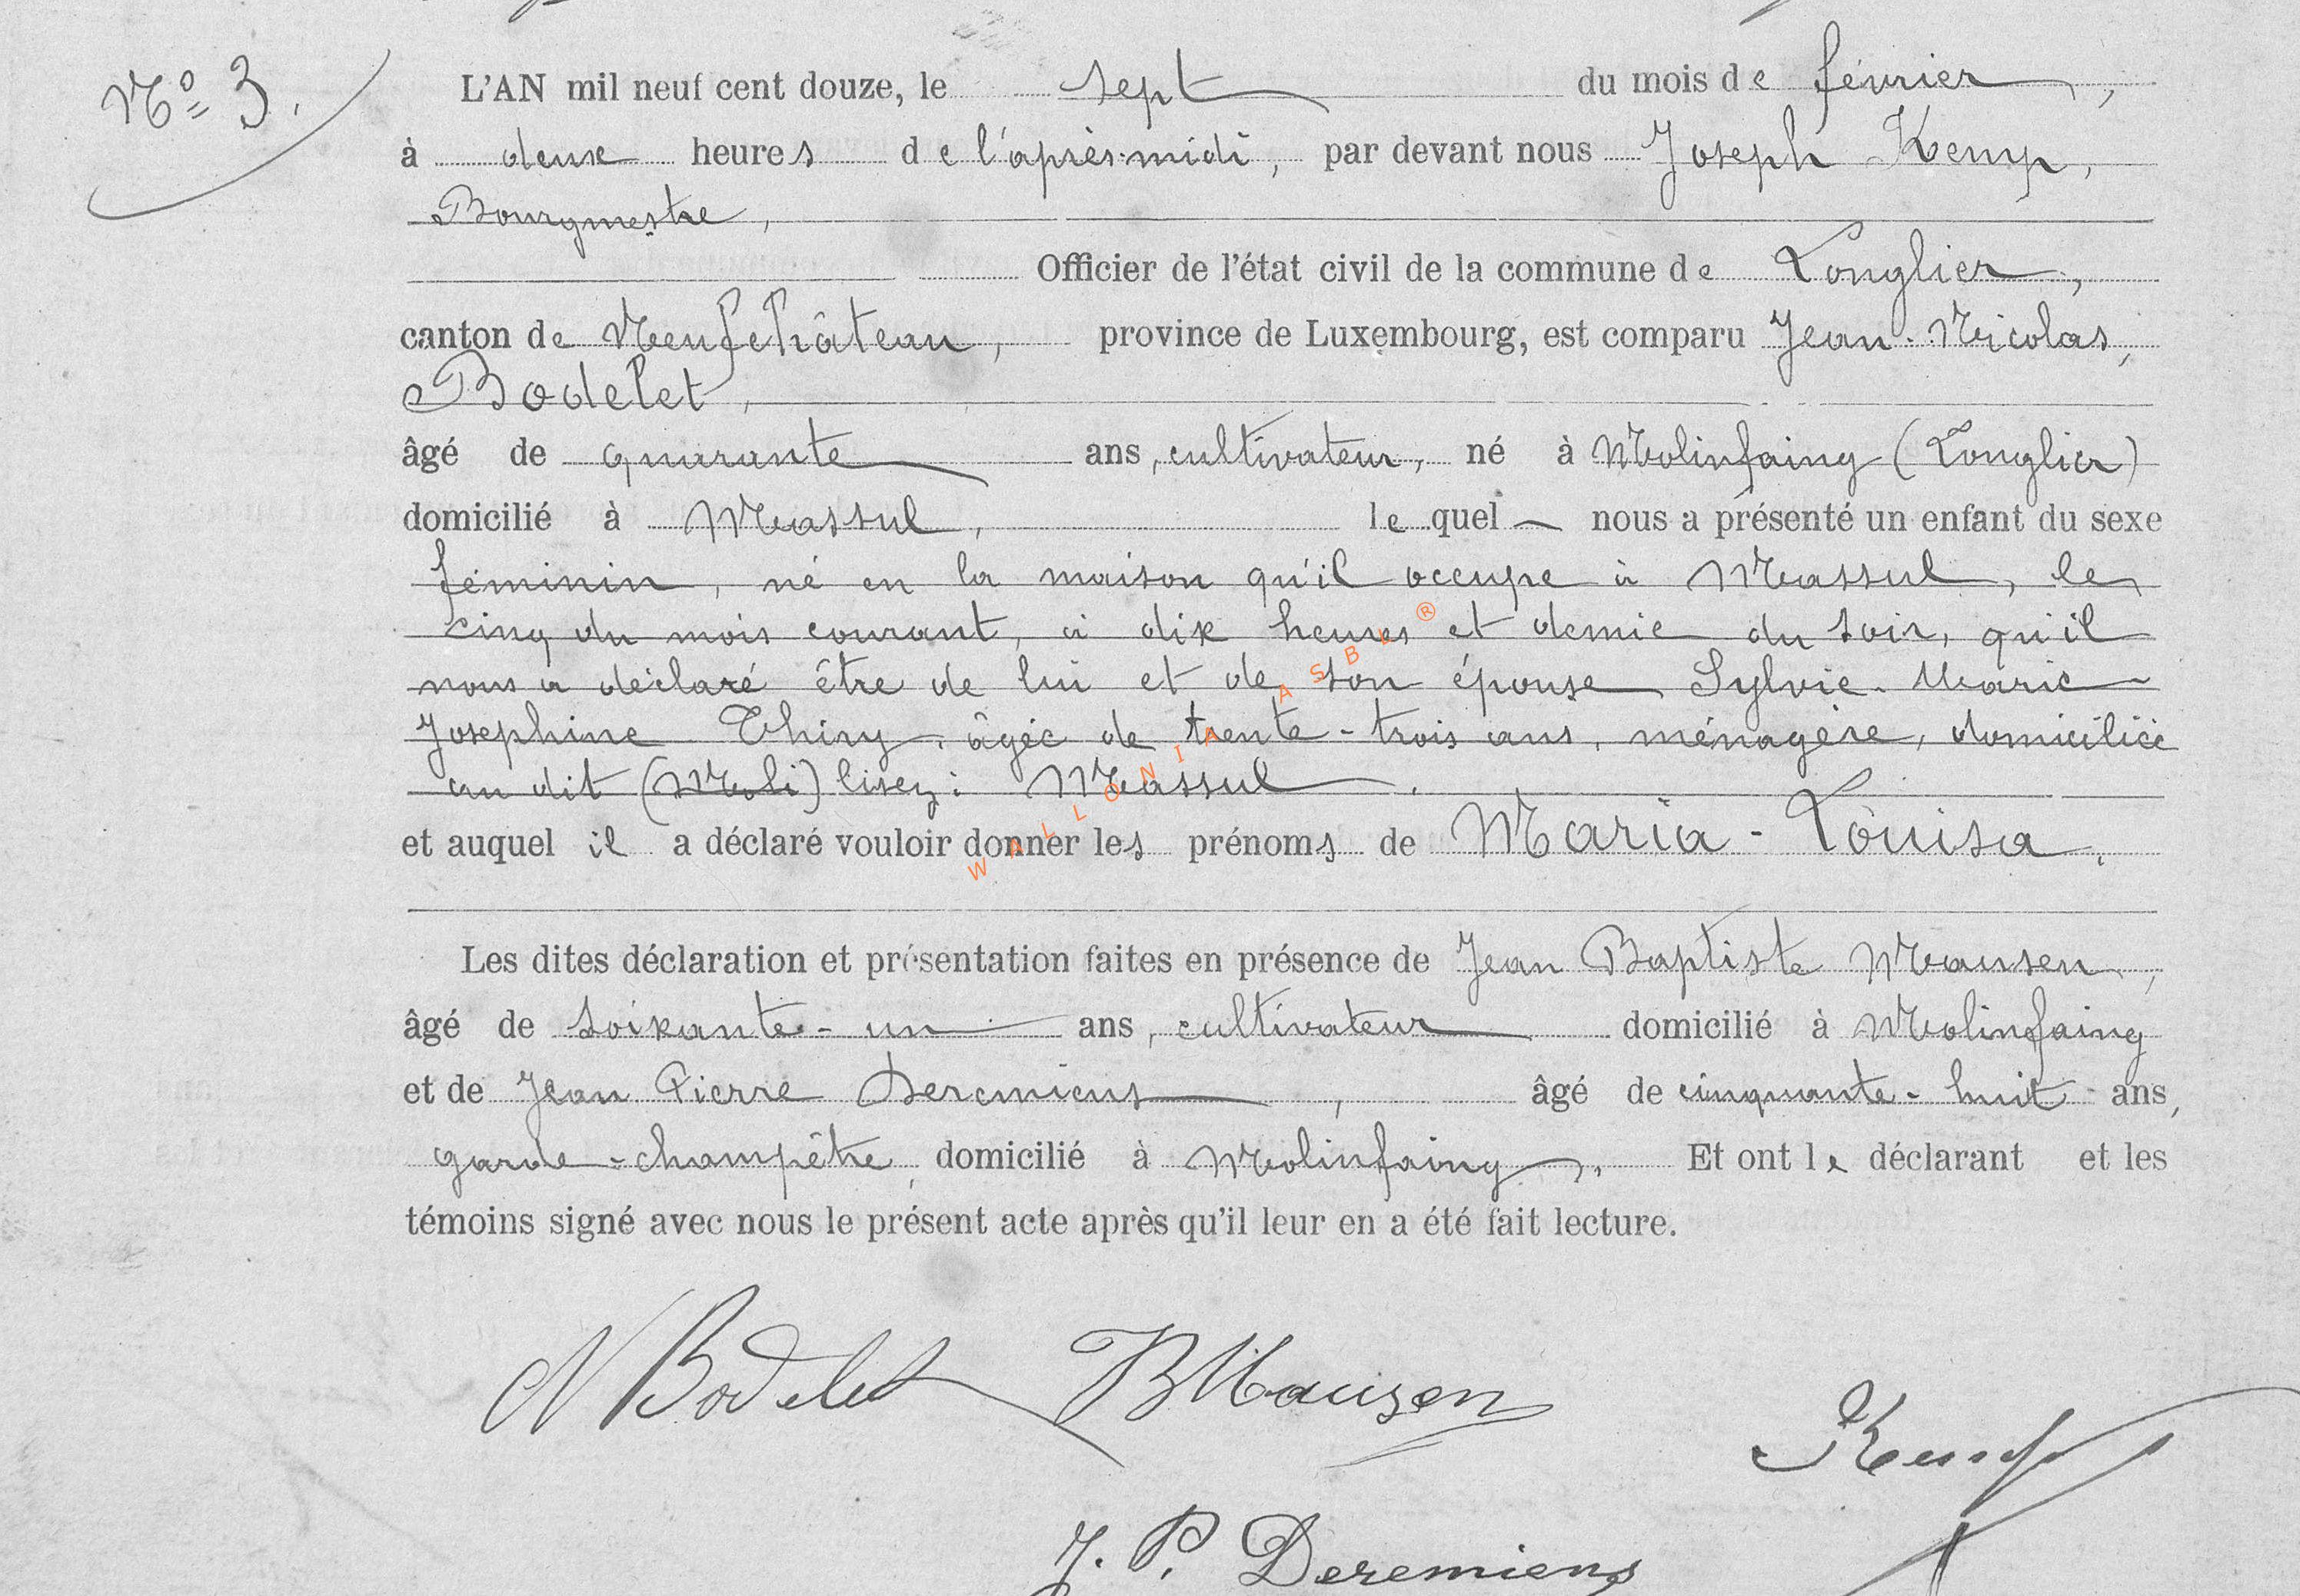 N° 3.
L'AN mil neuf cent douze, le sept du mois de février,
à deux heures de l'après-midi, par devant nous Joseph Kemp,
Bourgmestre,
Officier de l'état civil de la commune de Longlier,
canton de Neufchâteau, province de Luxembourg, est comparu Jean-Nicolas,
Bodelet,
âgé de quarante ans, cultivateur, né à Molinfaing (Longlier)
domicilié à Massul, lequel nous a présenté un enfant du sexe
féminin, né en la maison qu'il occupe à Massul, le
cinq du mois courant, à dix heures et demie du soir, qu'il
nous a déclaré être de lui et de son épouse Sylvie-Marie-
Josephine Thiry, âgée de trente-trois ans, ménagère, domiciliée
au dit (Moli) lisez: Massul.
et auquel il a déclaré vouloir donner les prénoms de Maria-Louisa.
Les dites déclaration et présentation faites en présence de Jean Baptiste Mausen,
âgé de soixante-un ans, cultivateur domicilié à Molinfaing
et de Jean Pierre Deremiens, âgé de cinquante-huit ans,
garde-champêtre, domicilié à Molinfaing. Et ont le déclarant et les
témoins signé avec nous le présent acte après qu'il leur en a été fait lecture.
N Bodelet JB Mausen
Kemp
J. P. Deremiens
WALLONIA ASBL ®